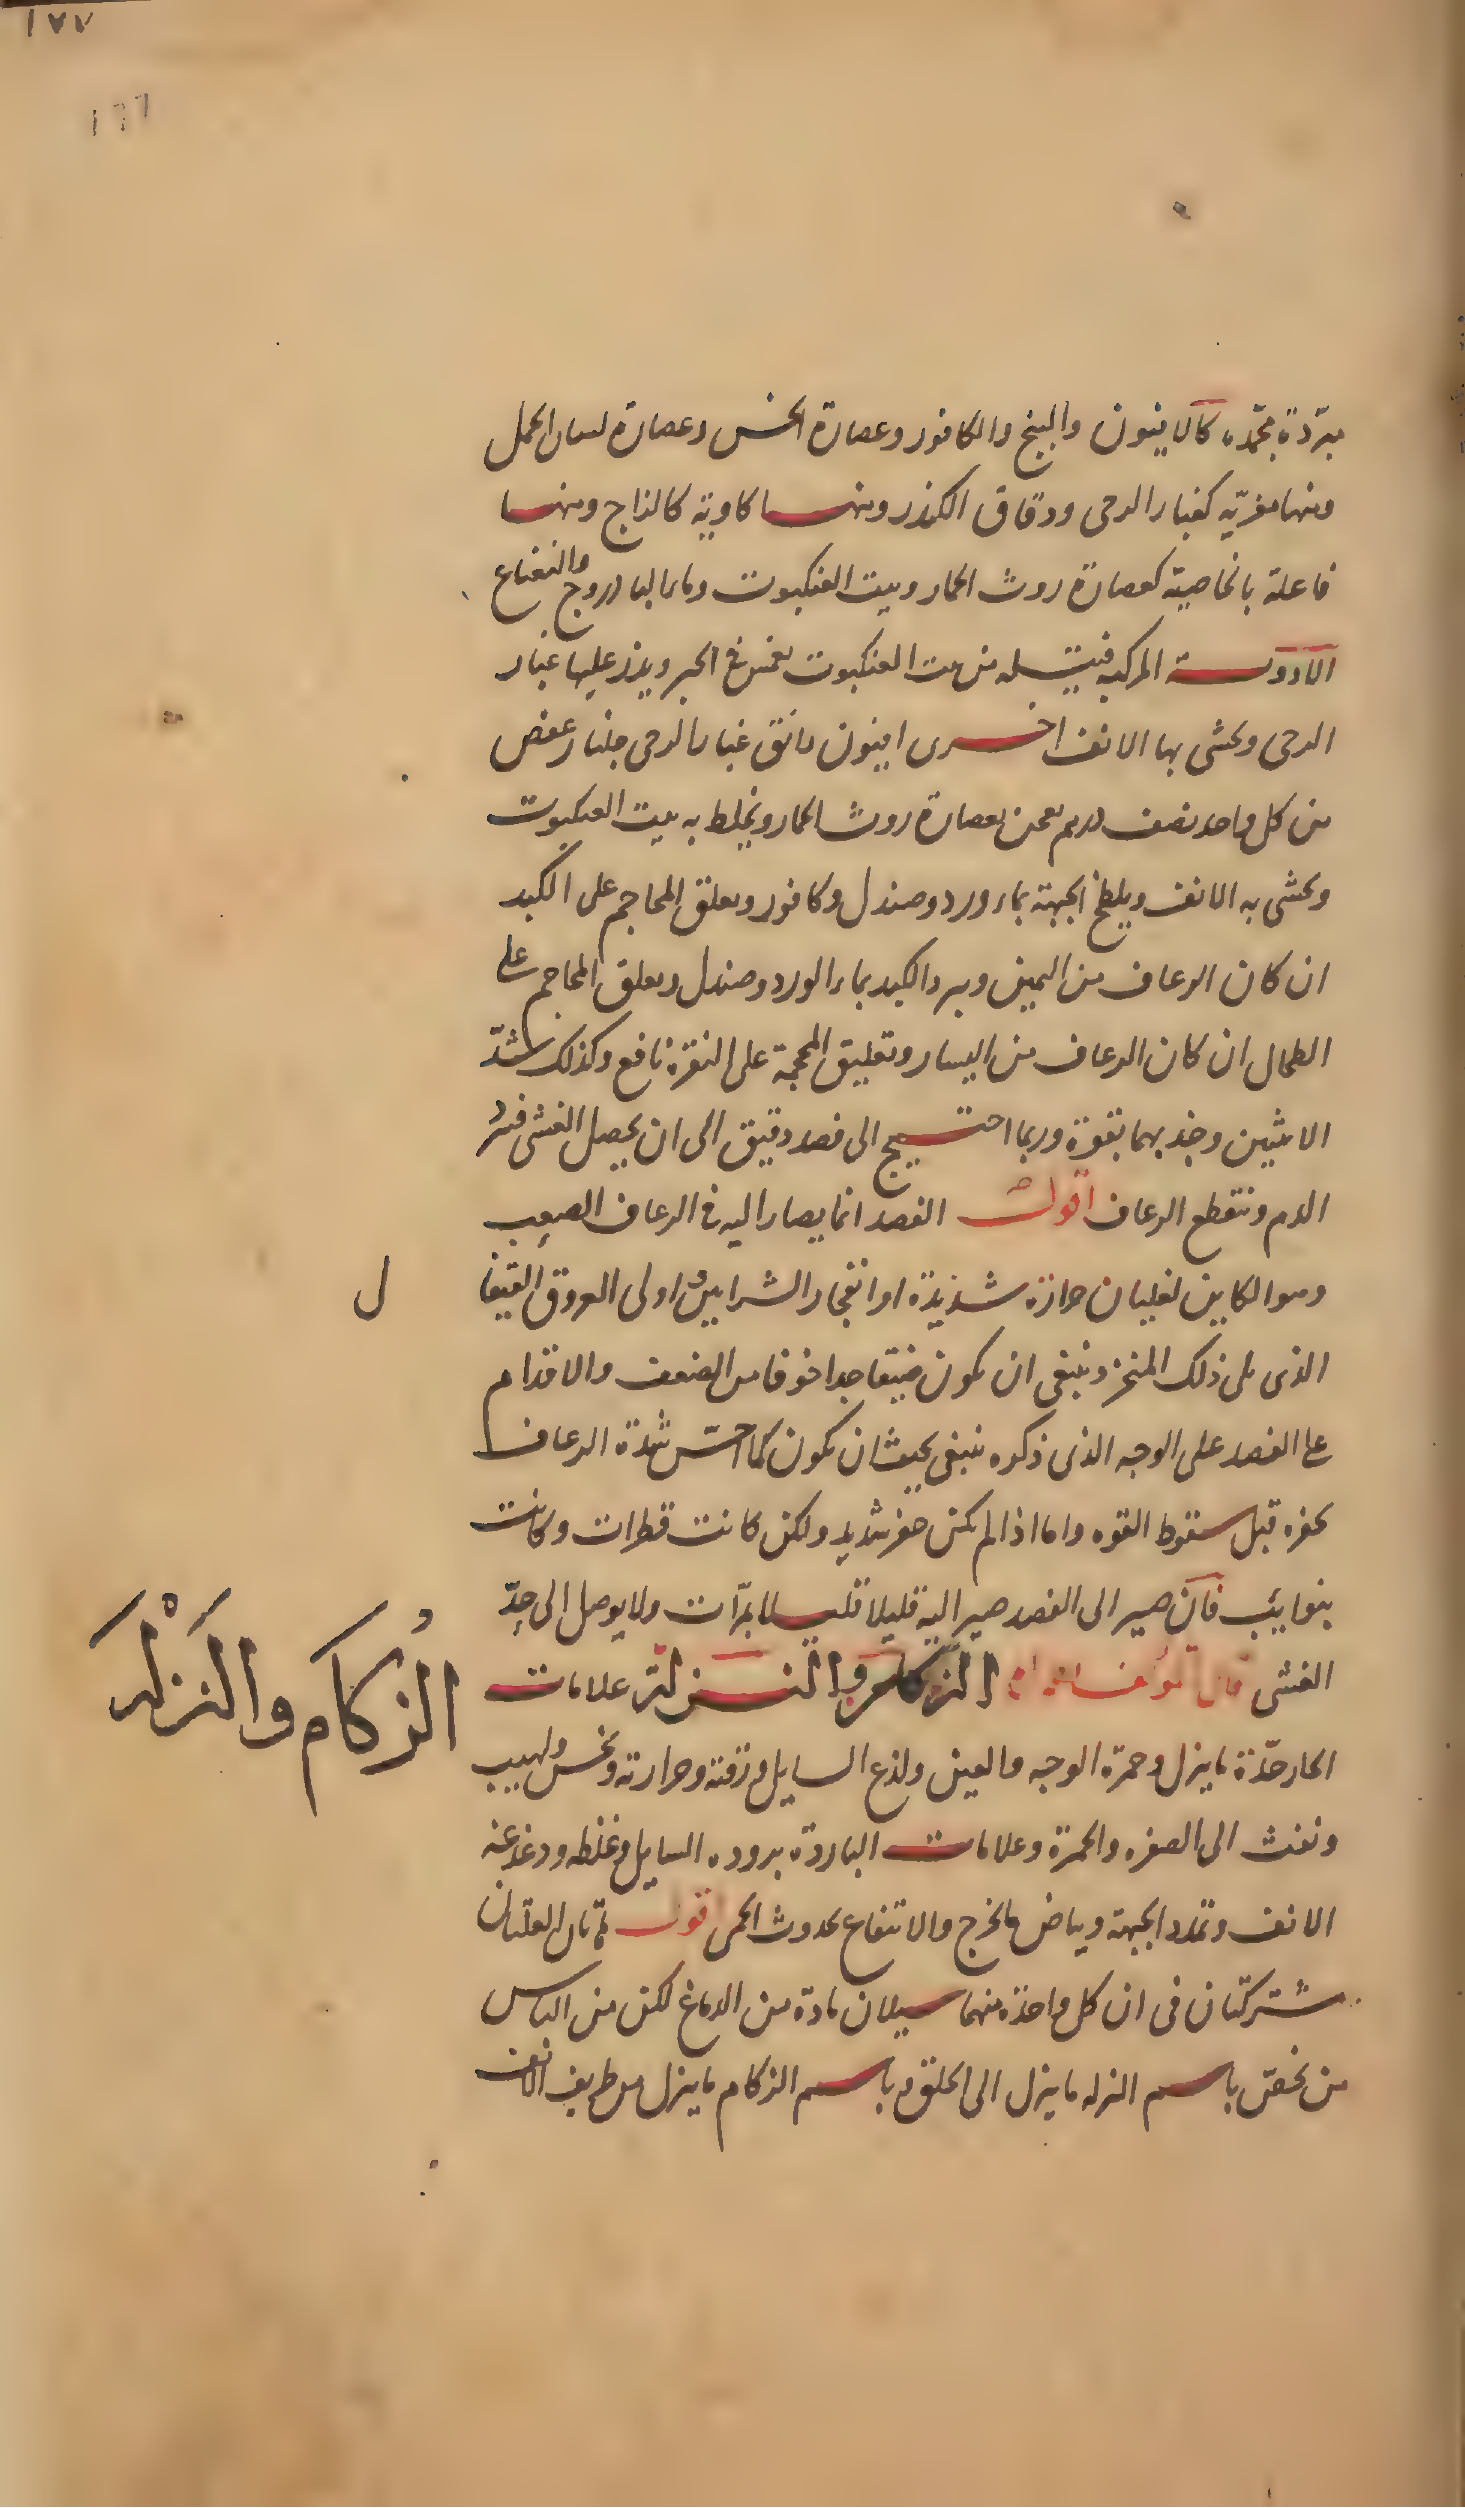 ١٧٧
١٦٦
مبرّدة مجمّده كالافيون والبنج والكافور وعصارة الخس وعصارة لسان الحمل
ومنها مغريّه كغبار الرحى ودقاق الكندر ومنها كاوية كالزاج ومنها
فاعلة بالخاصية كعصارة روث الحمار وبيت العنكبوت وماء الباذروج والنعناع
الادوية المركبه فتيله من بيت العنكبوت تغمس فى الحبر ويذر عليها غبار
الرحى وتحشى بها الانف اخرى افيون دانق غبار الرحى جلنار عفص
من كل واحد نصف درهم يعجن بعصارة روث الحمار ويخلط به بيت العنكبوت
وتحشى به الانف ويلطخ الجبهة بماء ورد وصندل وكافور وتعلق المحاجم على الكبد
ان كان الرعاف من اليمين وتبرد الكبد بماء الورد وصندل وتعلق المحاجم على
الطحال ان كان الرعاف من اليسار وتعليق المحجمة على النقرة نافع وكذلك شدّ
الانثيين وجذبهما بقوة وربما احتيج الى فصد دقيق الى ان يحصل الغشى فيبرد
الدم وينقطع الرعاف اقول الفصد انما يصار اليه فى الرعاف الصعب
وهو الكاين لغليان حرارة شديدة او انفجار الشرايين واولى العروق القيفا
ل
الذى يلى ذلك المنخر وينبغى ان يكون ضيقا جدا خوفا من الضعف والاقدام
على الفصد على الوجه الذى ذكره ينبغى بحيث ان يكون كما احسّ شدة الرعاف
بحفزه قبل سقوط القوه واما اذا لم يكن حفز شديد ولكن كانت قطرات وكانت
بنوايب فان صير الى الفصد صير اليه قليلا قليلا بمرّات ولا يوصل الى حدّ
الغشى قال المولف الزكام والنزلة علامات
الزُكام والنَزْلَه
الحار حدّة ما ينزل وحمرة الوجه والعين ولذع السايل ورقته وحرارته ونخس ولهيب
ونفث الى الصفره والحمرة وعلامات الباردة بروده السايل وغلظه ودغدغة
الانف وتمدد الجبهة وبياض ما يخرج والانتفاع بحدوث الحمى اقول هاتان العلتان
مشتركتان فى ان كل واحدة منهما سيلان مادة من الدماغ لكن من الناس
من يخصّ باسم النزله ما ينزل الى الحلق وباسم الزكام ما ينزل من طريق الانف